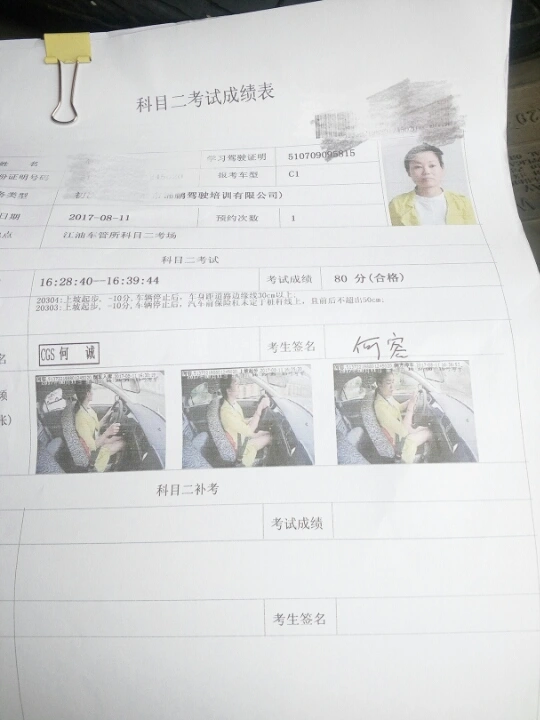 科目二考试成绩表
姓 名 学习驾驶证明 510709095815
身份证明号码 报考车型 C1
驾驶培训有限公司)
日期 2017-08-11 预约次数 1
地点 江油车管所科目二考场
科目二考试
16:28:40--16:39:44 考试成绩 80 分(合格)
20304:上坡起步, -10分,车辆停止后, 车身距道路边缘线30cm以上;
20303:上坡起步, -10分,车辆停止后, 汽车前保险杠未定于桩杆线上, 且前后不超出50cm.
名 CGS 何 诚 考生签名 何容
张)
科目二补考
考试成绩
考生签名